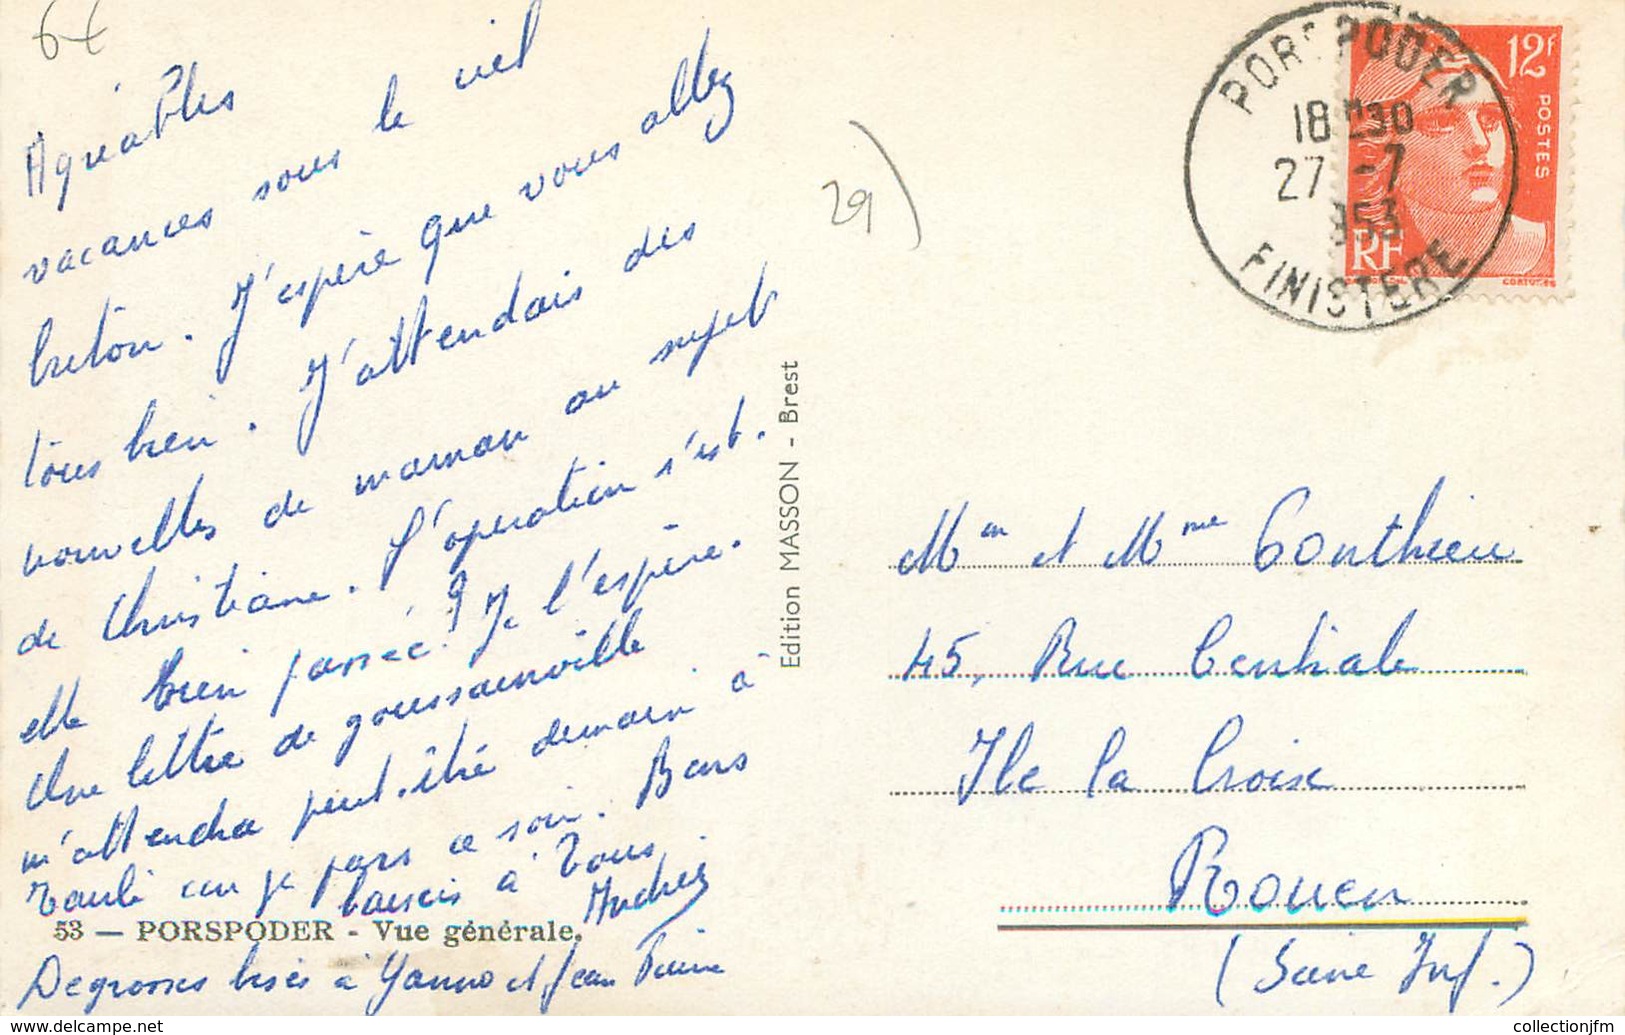 6€
Agréables
vacances sous le ciel
breton. J'espère que vous allez
tous bien. J'attendais des
nouvelles de maman au sujet
de Christiane. L'opération s'est.
elle bien passée? Je l'espère.
Une lettre de goussainville
m'attendra peut.être demain à
car je pars ce soir. Bons
baisers à Tous
53 — PORSPODER - Vue générale.
bises à et Jean Pierre
Edition MASSON - Brest
29)
PORSPODER
18H30
27 -7
953
FINISTERE
12f
POSTES
RF
Mr et Mme Gonthieu
45, Rue Centrale
Ile la Croix
Rouen
(Seine Inf.)
delcampe.net
collectionjfm